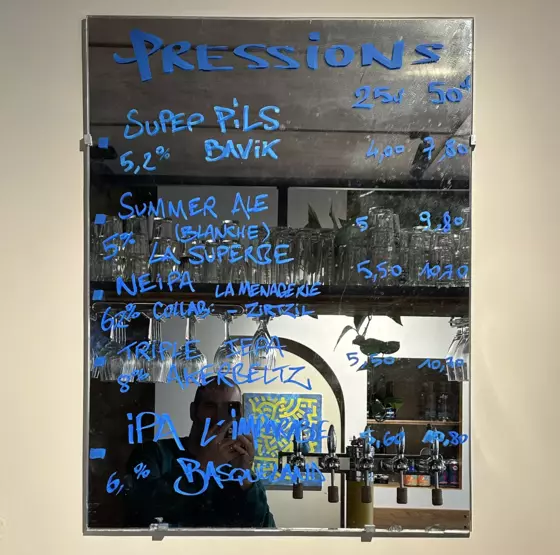 PRESSIONS
25cl 50cl
SUPER PILS
5,2% BAVIK 4,00 7,80
SUMMER ALE 5 9,80
(BLANCHE)
5% LA SUPERBE
NEIPA LA MENAGERIE 5,50 10,70
6,2% COLLAB - ZIRTZIL
TRIPLE 5,50 10,70
8% AKERBELTZ
IPA L'IMPARABLE 5,60 10,80
BASQUELAND